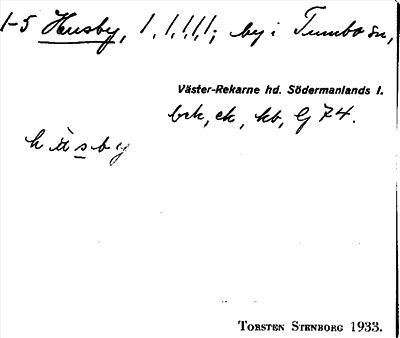 1-5 Husby, 1, 1, 1, 1, 1; by i Tumbo sn,
Väster-Rekarne hd. Södermanlands l.
bek, ek, kb, G 74.
hüsby
TORSTEN STENBORG 1933.